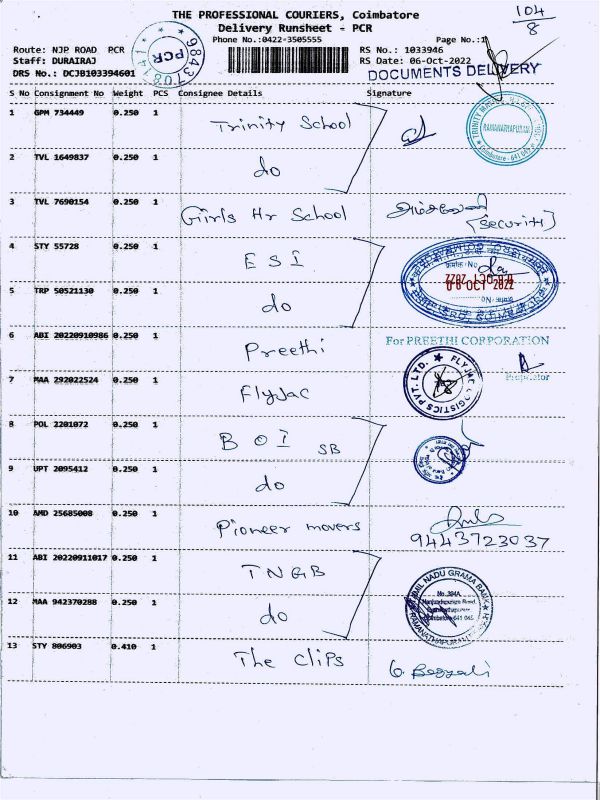 THE PROFESSIONAL COURIERS, Coimbatore
104
Delivery Runsheet - PCR
8
Phone No.:0422-3505555
Page No.:1
Route: NJP ROAD PCR
RS No.: 1033946
Staff: DURAIRAJ
RS Date: 06-Oct-2022
PCR
DRS No.: DCJB103394601
DOCUMENTS DELIVERY
S No Consignment No Weight PCS Consignee Details Signature
1 GPM 734449 0.250 1 Trinity School
RAMANATHAPURAM
2 TVL 1649837 0.250 1 do
3 TVL 7690154 0.250 1 Girls Hr School
(Security)
4 STY 55728 0.250 1 ESI
06 OCT 2022
5 TRP 50521130 0.250 1 do
6 ABI 20220910986 0.250 1 Preethi
For PREETHI CORPORATION
Proprietor
7 MAA 292022524 0.250 1 FlyJac
FLYJAC LOGISTICS PVT. LTD.
8 POL 2201072 0.250 1 BOI SB
9 UPT 2095412 0.250 1 do
10 AMD 25685008 0.250 1 Pioneer movers
9443723037
11 ABI 20220911017 0.250 1 TNGB
TAMIL NADU GRAMA BANK
12 MAA 942370288 0.250 1 do
13 STY 806903 0.410 1 The Clips